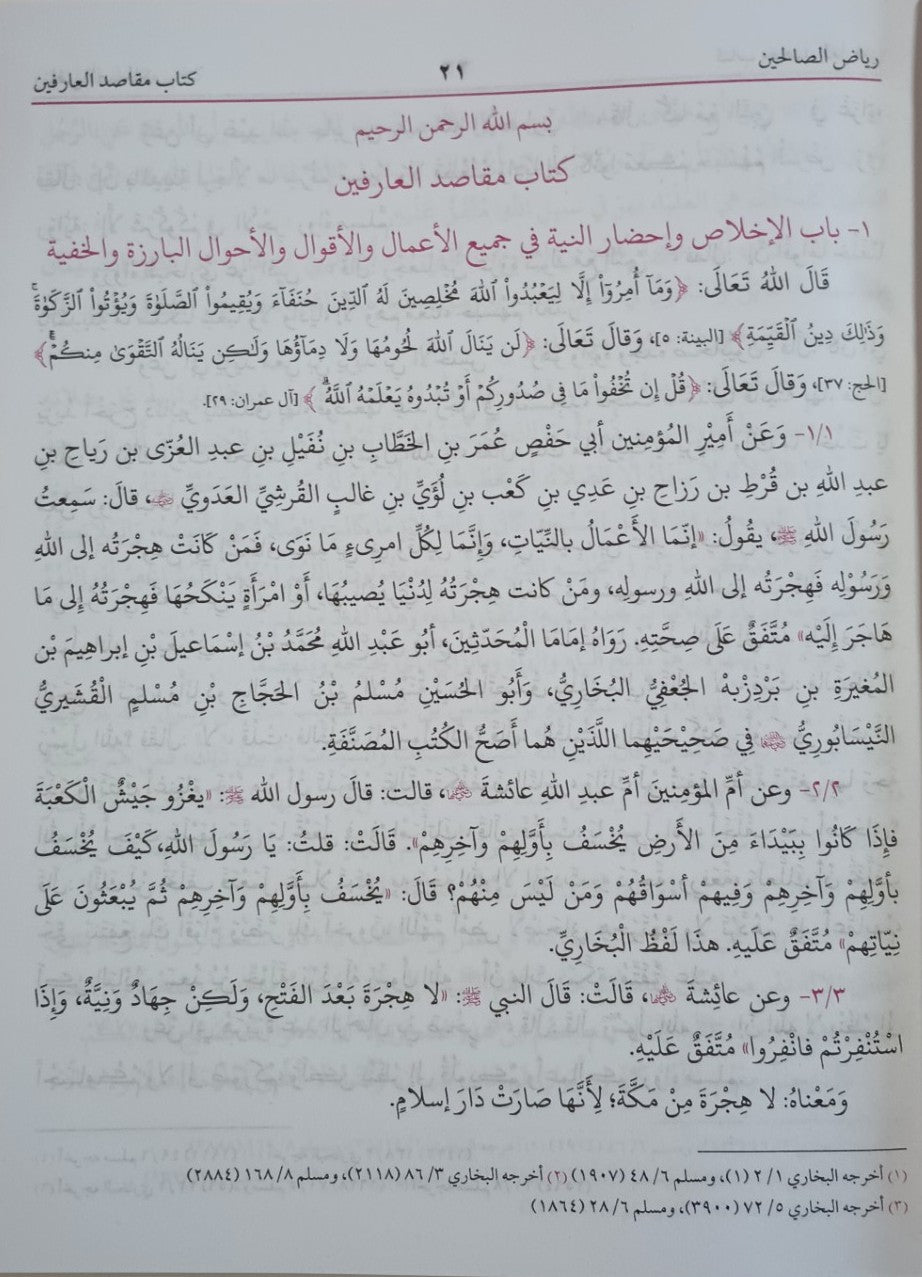 رياض الصالحين
٢١
كتاب مقاصد العارفين
بسم الله الرحمن الرحيم
كتاب مقاصد العارفين
١- باب الإخلاص وإحضار النية في جميع الأعمال والأقوال والأحوال البارزة والخفية
قَالَ اللهُ تَعَالَى: ﴿وَمَآ أُمِرُوٓاْ إِلَّا لِيَعۡبُدُواْ ٱللَّهَ مُخۡلِصِينَ لَهُ ٱلدِّينَ حُنَفَآءَ وَيُقِيمُواْ ٱلصَّلَوٰةَ وَيُؤۡتُواْ ٱلزَّكَوٰةَۚ
وَذَٰلِكَ دِينُ ٱلۡقَيِّمَةِ﴾ [البينة: ٥]، وَقَالَ تَعَالَى: ﴿لَن يَنَالَ ٱللَّهَ لُحُومُهَا وَلَا دِمَآؤُهَا وَلَٰكِن يَنَالُهُ ٱلتَّقۡوَىٰ مِنكُمۡۚ﴾
[الحج: ٣٧]، وَقَالَ تَعَالَى: ﴿قُلۡ إِن تُخۡفُواْ مَا فِي صُدُورِكُمۡ أَوۡ تُبۡدُوهُ يَعۡلَمۡهُ ٱللَّهُۗ﴾ [آل عمران: ٢٩].
١/١- وَعَنْ أَمِيْرِ المُؤْمِنِين أبي حَفْصٍ عُمَرَ بنِ الخَطَّابِ بنِ نُفَيْلِ بنِ عبدِ العُزّى بن رَياحِ بنِ
عبدِ اللهِ بن قُرْطِ بن رَزاحِ بنِ عَدِي بنِ كَعْبِ بنِ لُؤَيِّ بنِ غالبٍ القُرشِيِّ العَدَويِّ ﵁، قالَ: سَمِعتُ
رَسُولَ اللهِ ﷺ، يقُولُ: «إنّمَا الأَعْمَالُ بالنِّيّاتِ، وَإِنَّمَا لِكُلِّ امرِىءٍ مَا نَوَى، فَمَنْ كَانَتْ هِجْرَتُه إلى اللهِ
وَرَسُوْلِه فَهِجْرَتُه إلى اللهِ ورسولِه، ومَنْ كانت هِجْرَتُهُ لِدُنْيَا يُصيبُهَا، أَوْ امْرَأَةٍ يَنْكَحُهَا فَهِجْرَتُهُ إِلى مَا
هَاجَرَ إِلَيْه» مُتَّفَقٌ عَلَى صِحَّتِهِ. رَوَاهُ إمَامَا الْمُحَدّثِينَ، أبُو عَبْدِ اللهِ مُحَمَّدُ بْنُ إسْمَاعيلَ بْنِ إبراهِيمَ بْن
المُغيرَةِ بنِ بَرْدِزْبهْ الجُعْفِيُّ البُخَارِيُّ، وَأَبُو الحُسَيْنِ مُسْلمُ بْنُ الحَجَّاجِ بْنِ مُسْلمٍ الْقُشَيريُّ
النَّيْسَابُورِيُّ ﵄ فِي صَحِيْحَيْهِما اللَّذَيْنِ هُما أَصَحُّ الكُتُبِ المُصَنَّفَةِ.
٢/٢- وعن أمِّ المؤمِنينَ أمِّ عبدِ اللهِ عائشةَ ﵂، قالت: قالَ رسول الله ﷺ: «يغْزُو جَيْشٌ الْكَعْبَةَ
فإِذَا كَانُوا بِبَيْدَاءَ مِنَ الأَرضِ يُخْسَفُ بِأَوَّلِهِمْ وآخِرِهِمْ». قَالَتْ: قلتُ: يَا رَسُولَ اللهِ، كَيْفَ يُخْسَفُ
بأوَّلِهِمْ وَآخِرِهِمْ وَفِيهِمْ أسْوَاقُهُمْ وَمَنْ لَيْسَ مِنْهُمْ؟ قَالَ: «يُخْسَفُ بِأَوَّلِهِمْ وَآخِرِهِمْ ثُمَّ يُبْعَثُونَ عَلَى
نِيّاتِهِمْ» مُتَّفَقٌ عَلَيهِ. هذَا لَفْظُ الْبُخَارِيِّ.
٣/٣- وعن عائِشةَ ﵂، قَالَتْ: قَالَ النبي ﷺ: «لا هِجْرَةَ بَعْدَ الفَتْحِ، وَلَكِنْ جِهَادٌ وَنِيَّةٌ، وَإِذَا
اسْتُنْفِرْتُمْ فانْفِرُوا» مُتَّفَقٌ عَلَيْهِ.
وَمَعْناهُ: لا هِجْرَةَ مِنْ مَكَّةَ؛ لِأَنَّهَا صَارَتْ دَارَ إسلامٍ.
(١) أخرجه البخاري ٢/١ (١)، ومسلم ٤٨/٦ (١٩٠٧) (٢) أخرجه البخاري ٨٦/٣ (٢١١٨)، ومسلم ١٦٨/٨ (٢٨٨٤)
(٣) أخرجه البخاري ٧٢/٥ (٣٩٠٠)، ومسلم ٢٨/٦ (١٨٦٤)